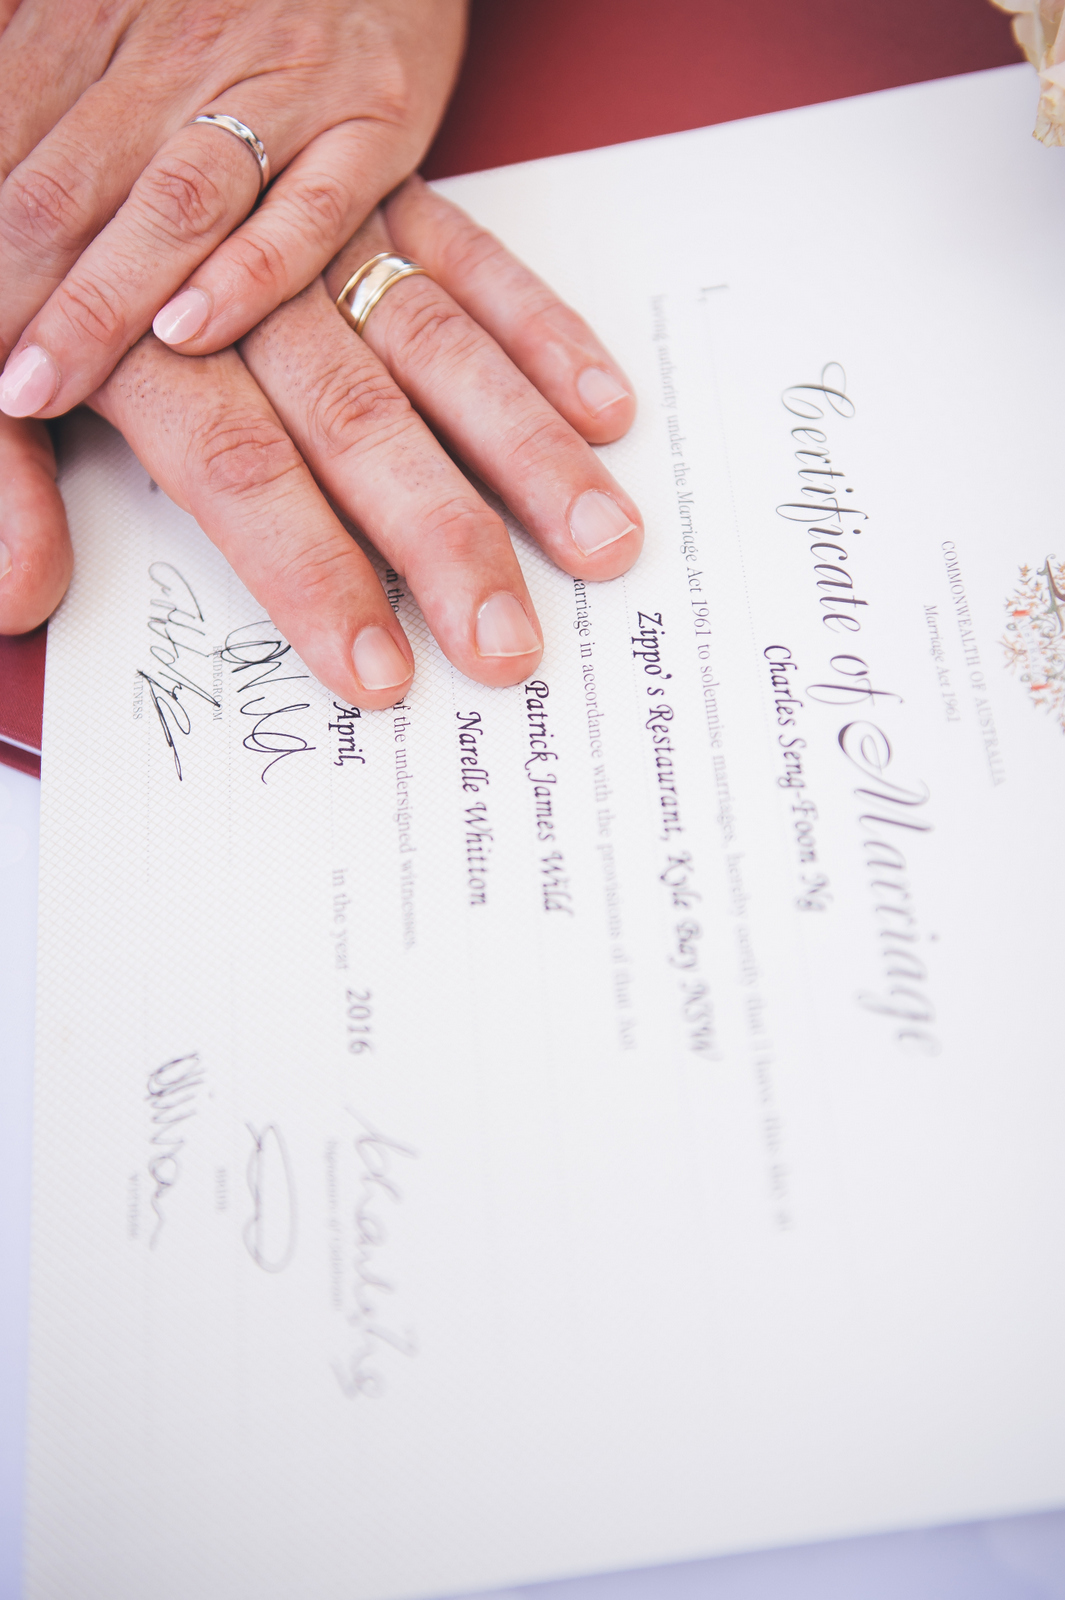 COMMONWEALTH OF AUSTRALIA
Marriage Act 1961
Certificate of Marriage
I, Charles Seng-Foon Ng
having authority under the Marriage Act 1961 to solemnise marriages, hereby certify that I have this day at
Zippo's Restaurant, Kyle Bay NSW
marriage in accordance with the provisions of that Act
Patrick James Wild
Narelle Whitton
in the of the undersigned witnesses.
April, in the year 2016
BRIDEGROOM BRIDE
WITNESS WITNESS